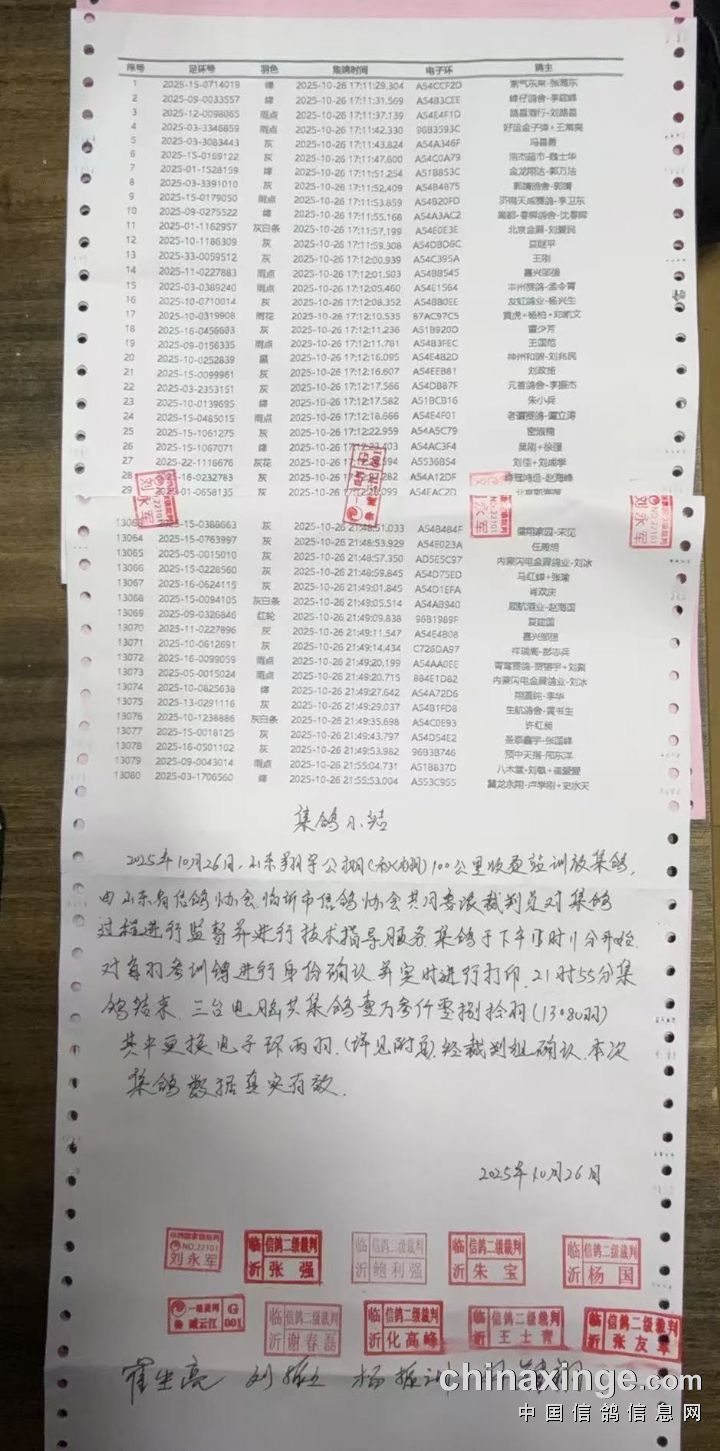 序号 足环号 羽色 集鸽时间 电子环 鸽主
1 2025-15-0714019 绛 2025-10-26 17:11:29.304 A54CCF2D 紫气东来-张海东
2 2025-09-0033557 绛 2025-10-26 17:11:31.569 A54B3CEE
3 2025-12-0098065 雨点 2025-10-26 17:11:37.139 A54E4F1D
4 2025-03-3346859 雨点 2025-10-26 17:11:42.330 96B3593C
5 2025-03-3083443 灰 2025-10-26 17:11:43.824 A54A346F
6 2025-15-0169122 灰 2025-10-26 17:11:47.600 A54C0A79 浩杰超市-魏士华
7 2025-01-1528159 绛 2025-10-26 17:11:51.254 A51B853C 金龙翔达-郭万法
8 2025-03-3391010 灰 2025-10-26 17:11:52.409 A54B4875
9 2025-15-0179050 雨点 2025-10-26 17:11:53.859 A54B20FD 济南天成赛鸽-李卫东
10 2025-09-0275522 绛 2025-10-26 17:11:55.166 A54A3AC2
11 2025-01-1162957 灰白条 2025-10-26 17:11:57.199 A54E0E3E 北京金翼-刘爱民
12 2025-10-1186309 灰 2025-10-26 17:11:59.308 A54DBD6C
13 2025-33-0059512 灰 2025-10-26 17:12:00.939 A54C395A 王刚
14 2025-11-0227883 雨点 2025-10-26 17:12:01.503 A54BB545 嘉兴邹强
15 2025-03-0389240 雨点 2025-10-26 17:12:05.460 A54E1564
16 2025-10-0710014 灰 2025-10-26 17:12:08.352 A54BB0EE 友虹鸽业-杨兴生
17 2025-10-0319908 雨花 2025-10-26 17:12:10.535 87AC97C5 黄虎+杨柏+邓凯文
18 2025-16-0456603 灰 2025-10-26 17:12:11.236 A51B920D 雷少芳
19 2025-09-0156335 雨点 2025-10-26 17:12:11.781 A54B3FEC 王国范
20 2025-10-0252839 黑 2025-10-26 17:12:16.095 A54E4B2D 神州和骏-刘兆民
21 2025-15-0099961 灰 2025-10-26 17:12:16.607 A54EEB81
22 2025-03-2353151 灰 2025-10-26 17:12:17.566 A54DB87F 元首鸽舍-李振杰
23 2025-10-0139695 绛 2025-10-26 17:12:17.582 A51BCB16 朱小兵
24 2025-15-0485015 雨点 2025-10-26 17:12:18.666 A54E4F01 老谭赛鸽-谭立涛
25 2025-15-1061275 灰 2025-10-26 17:12:22.959 A54A5C79
26 2025-15-1067071 绛 2025-10-26 17:12:23.403 A54AC3F4 吴刚+徐强
27 2025-22-1116676 灰花 A5536B54 刘佳+刘成学
28 灰 A54A12DF
29 灰 A54EAC2D
2025-15-0388663 灰 2025-10-26 21:48:51.033 A54B4B4F
13064 2025-15-0763997 灰 2025-10-26 21:48:53.929 A54E023A 任殿明
13065 2025-05-0015010 灰 2025-10-26 21:48:57.350 AD5E5C97 内蒙闪电金翼鸽业-刘冰
13066 2025-15-0228560 灰 2025-10-26 21:48:59.845 A54D75ED
13067 2025-16-0624115 灰 2025-10-26 21:49:01.845 A54D1EFA 肖双庆
13068 2025-15-0094105 灰白条 2025-10-26 21:49:05.514 A54AB940
13069 2025-09-0326846 红轮 2025-10-26 21:49:09.838 96B1989F 夏建国
13070 2025-11-0227896 灰 2025-10-26 21:49:11.547 A54E4B08 嘉兴邹强
13071 2025-10-0612691 灰 2025-10-26 21:49:14.434 C726DA97
13072 2025-16-0099059 雨点 2025-10-26 21:49:20.199 A54AA0EE
13073 2025-05-0015024 雨点 2025-10-26 21:49:20.715 884E1D82 内蒙闪电金翼鸽业-刘冰
13074 2025-10-0825638 绛 2025-10-26 21:49:27.642 A54A72D6
13075 2025-13-0291116 灰 2025-10-26 21:49:29.037 A54B1FD8 生航鸽舍-黄书生
13076 2025-10-1236886 灰白条 2025-10-26 21:49:35.698 A54C0E93 许红昶
13077 2025-15-0018125 灰 2025-10-26 21:49:43.797 A54D54E2 圣泰鑫宇-张国峰
13078 2025-16-0501102 灰 2025-10-26 21:49:53.982 96B3B746
13079 2025-09-0043014 雨点 2025-10-26 21:55:04.731 A51B837D 八木堂-刘敏+崔爱爱
13080 2025-03-1706560 绛 2025-10-26 21:55:53.004 A553C955 冀龙永翔-卢学刚+史水天
集鸽小结
2025年10月26日,山东翔宇公棚(秋棚)100公里收费站训放集鸽,
由山东省信鸽协会、临沂市信鸽协会共同委派裁判员对集鸽
过程进行监督并进行技术指导服务.集鸽于下午17时11分开始,
对每羽参训鸽进行身份确认并实时进行打印,21时55分集
鸽结束,三台电脑共集鸽壹万叁仟零捌拾羽(13080羽)
其中更换电子环两羽,(详见附页).经裁判组确认,本次
集鸽数据真实有效.
2025年10月26日
NO.22101 刘永军
临沂 信鸽二级裁判 张强
临沂 信鸽二级裁判 鲍利强
临沂 信鸽二级裁判 朱宝
临沂 信鸽二级裁判 杨国
一级裁判 G 鲁 臧云江 001
临沂 信鸽二级裁判 谢春磊
临沂 信鸽二级裁判 化高峰
临沂 信鸽二级裁判 王士青
临沂 信鸽二级裁判 张友军
chinaxinge.com
中国信鸽信息网